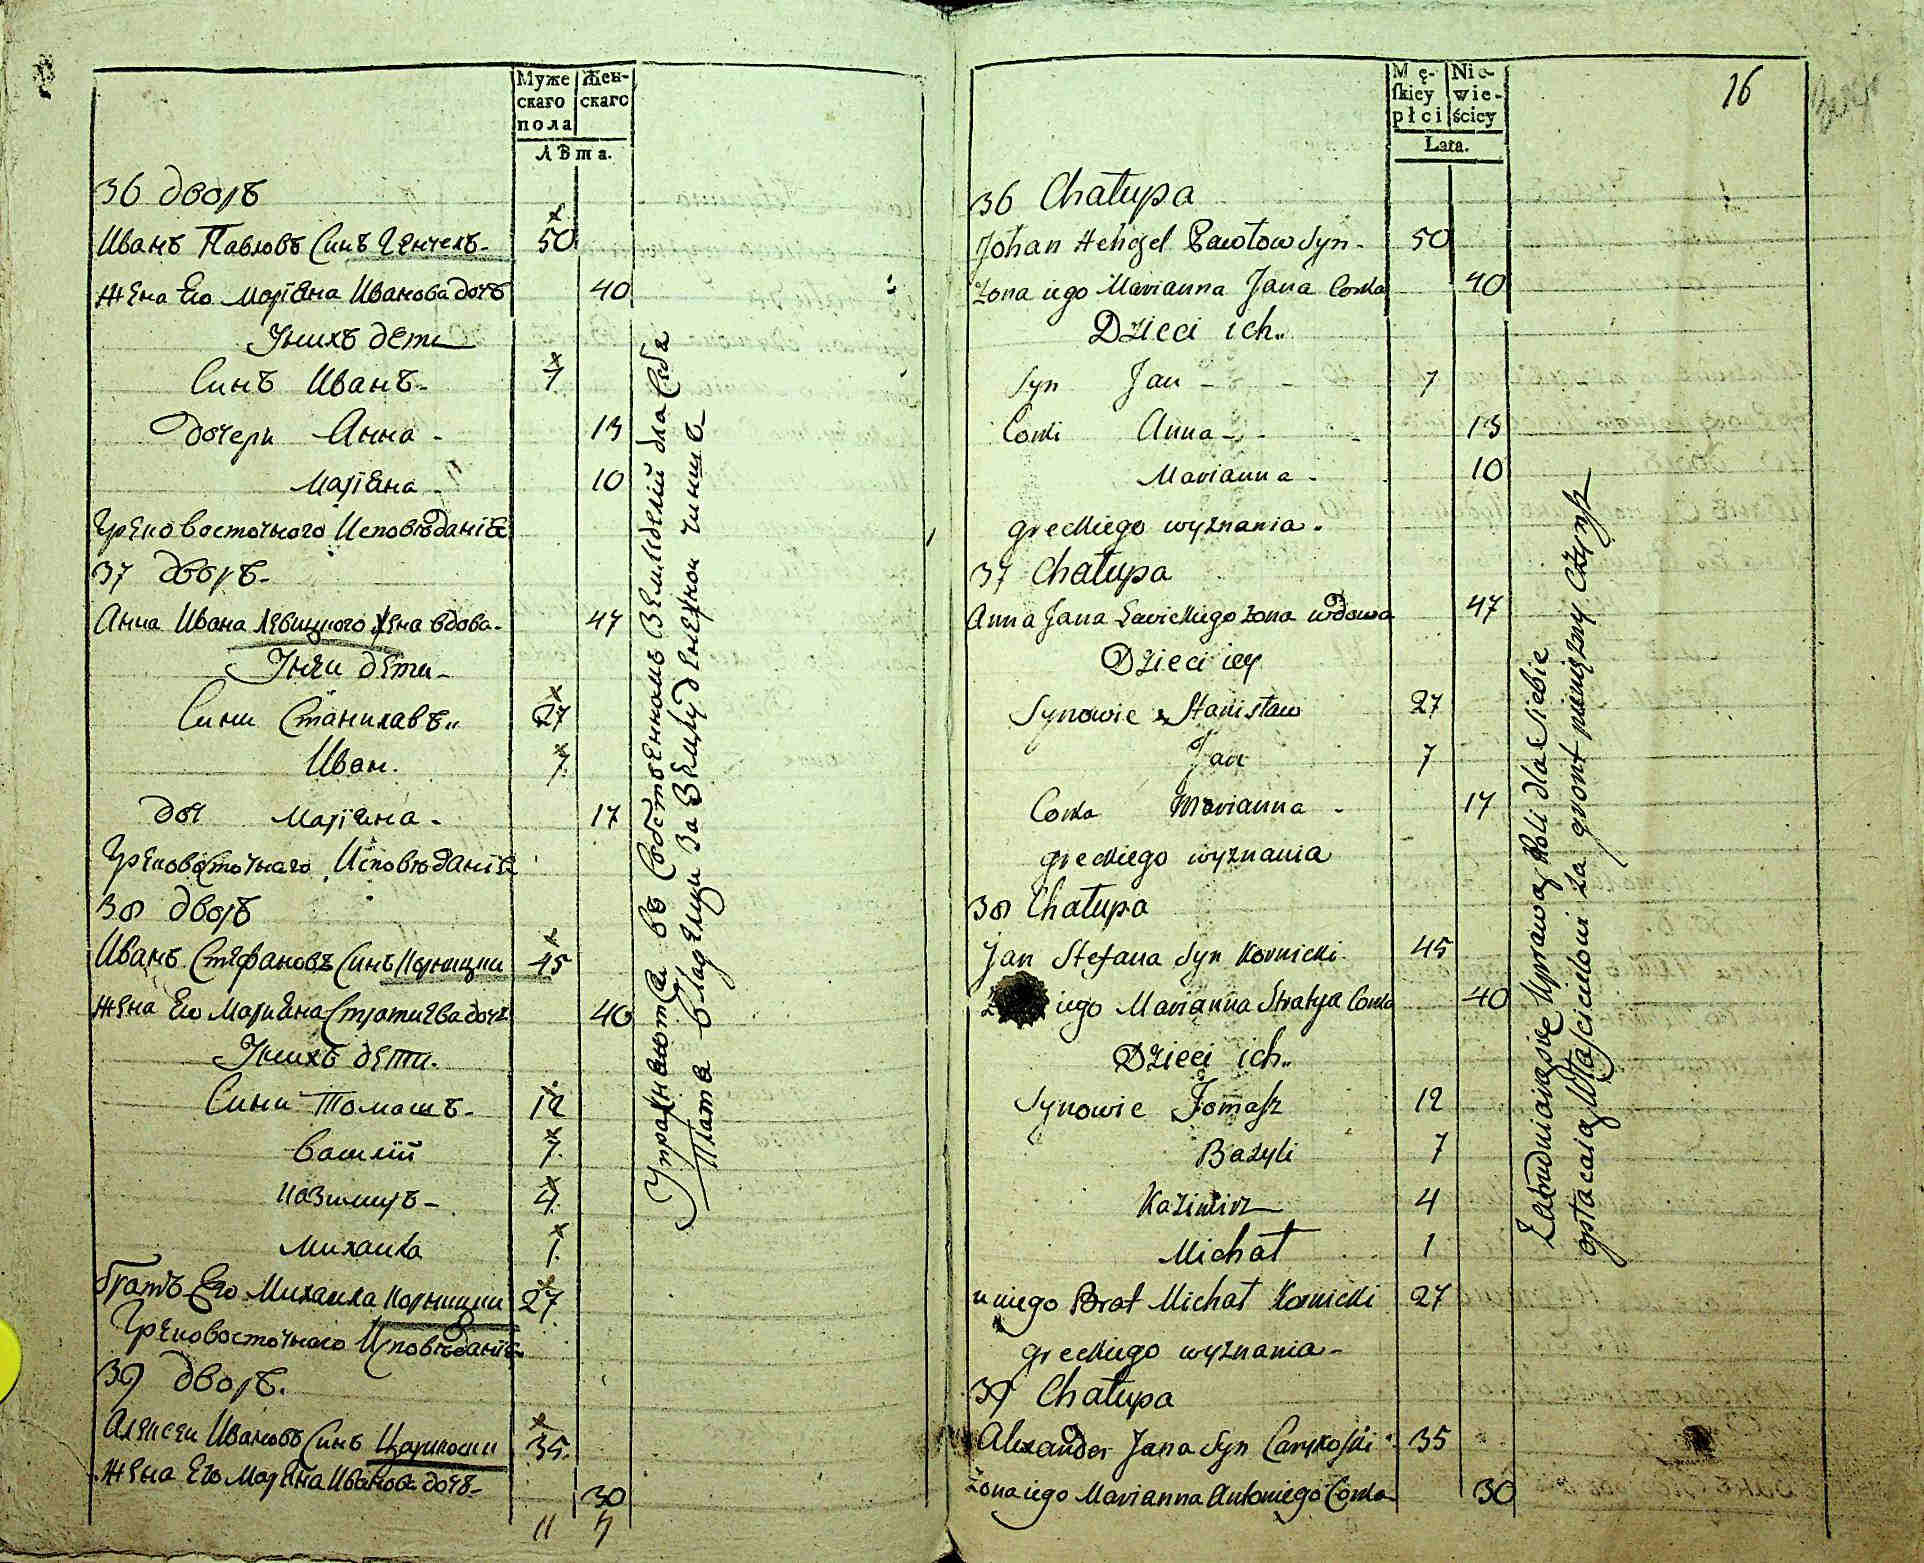 Муже
скаго
пола
Жен-
скаго
лѣта.
36 дворъ
Иванъ Павловъ Синъ Генчелъ - 50
жена Его Маріяна Иванова дочъ 40
Унихъ дети
Синъ Иванъ - 7
дочери Анна - 13
Маріяна - 10
Грековосточного Исповѣданіѣ
37 дворъ -
Анна Ивана Левицкого жена вдова - 47
Унеи дети -
Сини Станилавъ 27
Иван. 7
доч Маріяна - 17
Грековосточнаго Исповѣданіѣ
38 дворъ
Иванъ Стефановъ Синъ Корницки 45
жена Его Маріяна Стратиева дочъ 40
Унихъ дети.
Сини Томашъ - 12
Василій 7
Казимиръ - 4
Михаила 1
братъ Его Михаила Корницки 27
Грековосточнаго Исповѣданіѣ
39 дворъ.
Алексеи Ивановъ Синъ Царикоски 35
жена Его Маріяна Иванова дочъ - 30
11 7
Упражняютса въ Собственномъ Земледелій для Себя
Плате владелци за Землу денежнои чиншъ
16
Mę-
ſkiey
płci
Nie-
wie-
ściey
Lata.
36 Chałupa
Johan Henczel Pawłow Syn - 50
Zona iego Marianna Jana Corka 40
Dzieci ich
Syn Jan - 7
Corki Anna - 13
Marianna - 10
greckiego wyznania.
37 Chałupa
Anna Jana Lavickiego zona wdowa 47
Dzieci iey
Synowie Stanisław 27
Jan 7
Corka Marianna - 17
greckiego wyznania
38 Chałupa
Jan Stefana Syn Kornicki 45
iego Marianna Stratyja Corka 40
Dzieci ich
Synowie Tomaſz 12
Bazyli 7
Kazimirz 4
Michał 1
u niego Brat Michał Kornicki 27
greckiego wyznania -
39 Chałupa
Alexander Jana Syn Carykoſki 35
Zona iego Marianna Antoniego Corka 30
Zatrudniaią się Uprawą Roli dla siebie
opłacaią Właścicielowi za gront pienięzny Czynſz